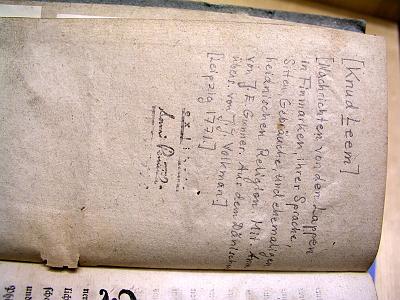 [Knud Leem]
[Nachrichten von den Lappen
in Finmarken, ihrer Sprache,
Sitten, Gebräuche, und ehemaligen
heidnischen Religion. Mit Anm.
von J. E. Gunner. Aus dem Dänischen
übers. von J. J. Volkman]
[Leipzig 1771.]